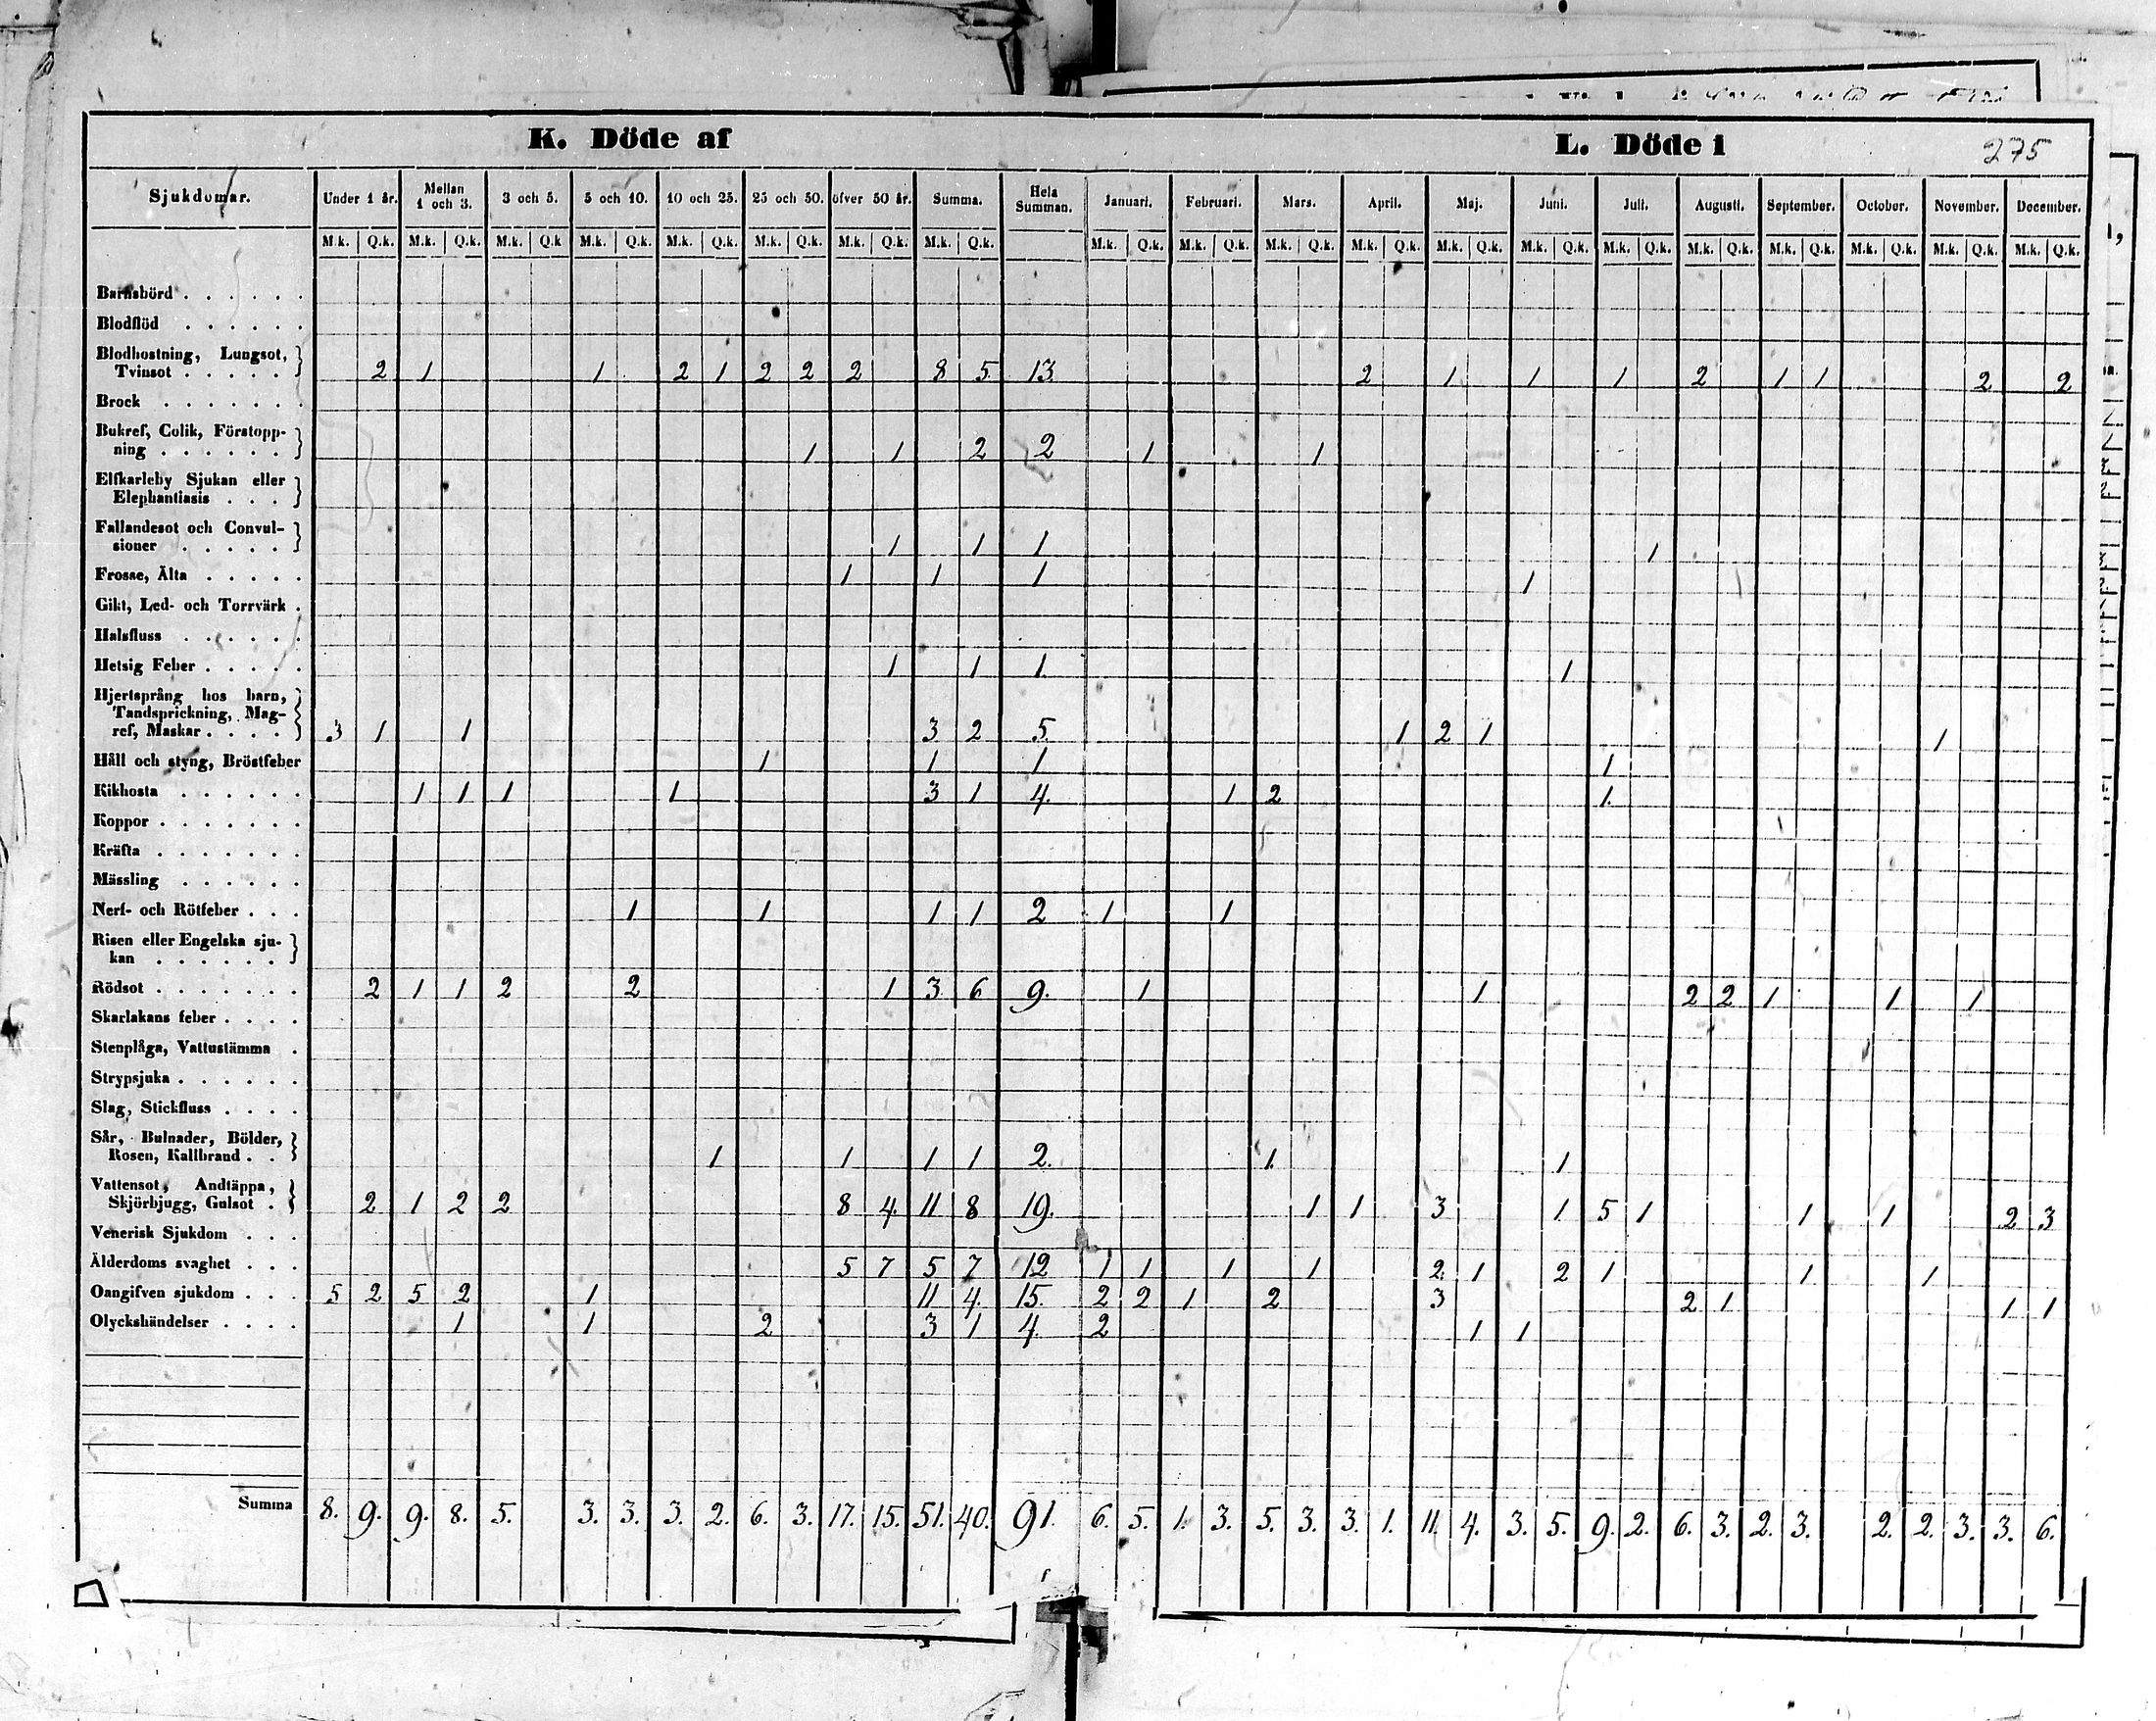 K. Döde af L. Döde i 275
Sjukdomar. Under 1 år. Mellan 1 och 3. 3 och 5. 5 och 10. 10 och 25. 25 och 50. öfver 50 år. Summa. Hela Summan. Januari. Februari. Mars. April. Maj. Juni. Juli. Augusti. September. October. November. December.
M.k. Q.k. M.k. Q.k. M.k. Q.k M.k. Q.k. M.k. Q.k. M.k. Q.k. M.k. Q.k. M.k. Q.k. M.k. Q.k. M.k. Q.k. M.k. Q.k. M.k. Q.k. M.k. Q.k. M.k. Q.k. M.k. Q.k. M.k. Q.k. M.k. Q.k. M.k. Q.k. M.k. Q.k. M.k. Q.k.
Barnsbörd . . . . . .
Blodflöd . . . . . .
Blodhostning, Lungsot,
Tvinsot . . . . . 2 1 1 2 1 2 2 2 8 5 13 2 1 1 1 2 1 1 2 2
Brock . . . . . . .
Bukref, Colik, Förstopp-
ning . . . . . . 1 1 2 2 1 1
Elfkarleby Sjukan eller
Elephantiasis . . .
Fallandesot och Convul-
sioner . . . . . 1 1 1 1
Frosse, Älta . . . . . 1 1 1 1
Gikt, Led- och Torrvärk .
Halsfluss . . . . . .
Hetsig Feber . . . . . 1 1 1 1
Hjertsprång hos barn,
Tandsprickning, Mag-
ref, Maskar . . . . 3 1 1 3 2 5 1 2 1 1
Håll och styng, Bröstfeber 1 1 1 1
Kikhosta . . . . . . 1 1 1 1 3 1 4. 1 2 1
Koppor . . . . . . .
Kräfta . . . . . . .
Mässling . . . . . .
Nerf- och Rötfeber . . . 1 1 1 1 2 1 1
Risen eller Engelska sju-
kan . . . . . .
Rödsot . . . . . . . 2 1 1 2 2 1 3 6 9. 1 1 2 2 1 1 1
Skarlakans feber . . . .
Stenplåga, Vattustämma .
Strypsjuka . . . . . .
Slag, Stickfluss . . . .
Sår, Bulnader, Bölder,
Rosen, Kallbrand . . 1 1 1 1 2. 1. 1
Vattensot, Andtäppa,
Skjörbjugg, Gulsot . 2 1 2 2 8 4. 11 8 19. 1 1 3 1 5 1 1 1 2 3
Venerisk Sjukdom . . .
Ålderdoms svaghet . . . 5 7 5 7 12 1 1 1 1 2. 1 2 1 1 1
Oangifven sjukdom . . . 5 2 5 2 1 11 4. 15. 2 2 1 2 3 2 1 1 1
Olyckshändelser . . . . 1 1 2 3 1 4. 2 1 1
Summa 8. 9. 9. 8. 5. 3. 3. 3. 2. 6. 3. 17. 15. 51. 40. 91. 6. 5. 1. 3. 5. 3. 3. 1. 11. 4. 3. 5. 9. 2. 6. 3. 2. 3. 2. 2. 3. 3. 6.